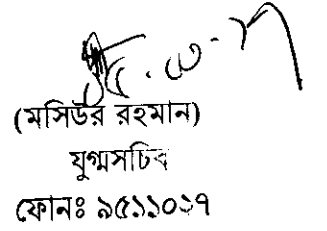 (মসিউর রহমান)
যুগ্মসচিব
ফোনঃ ৯৫১১০১৭